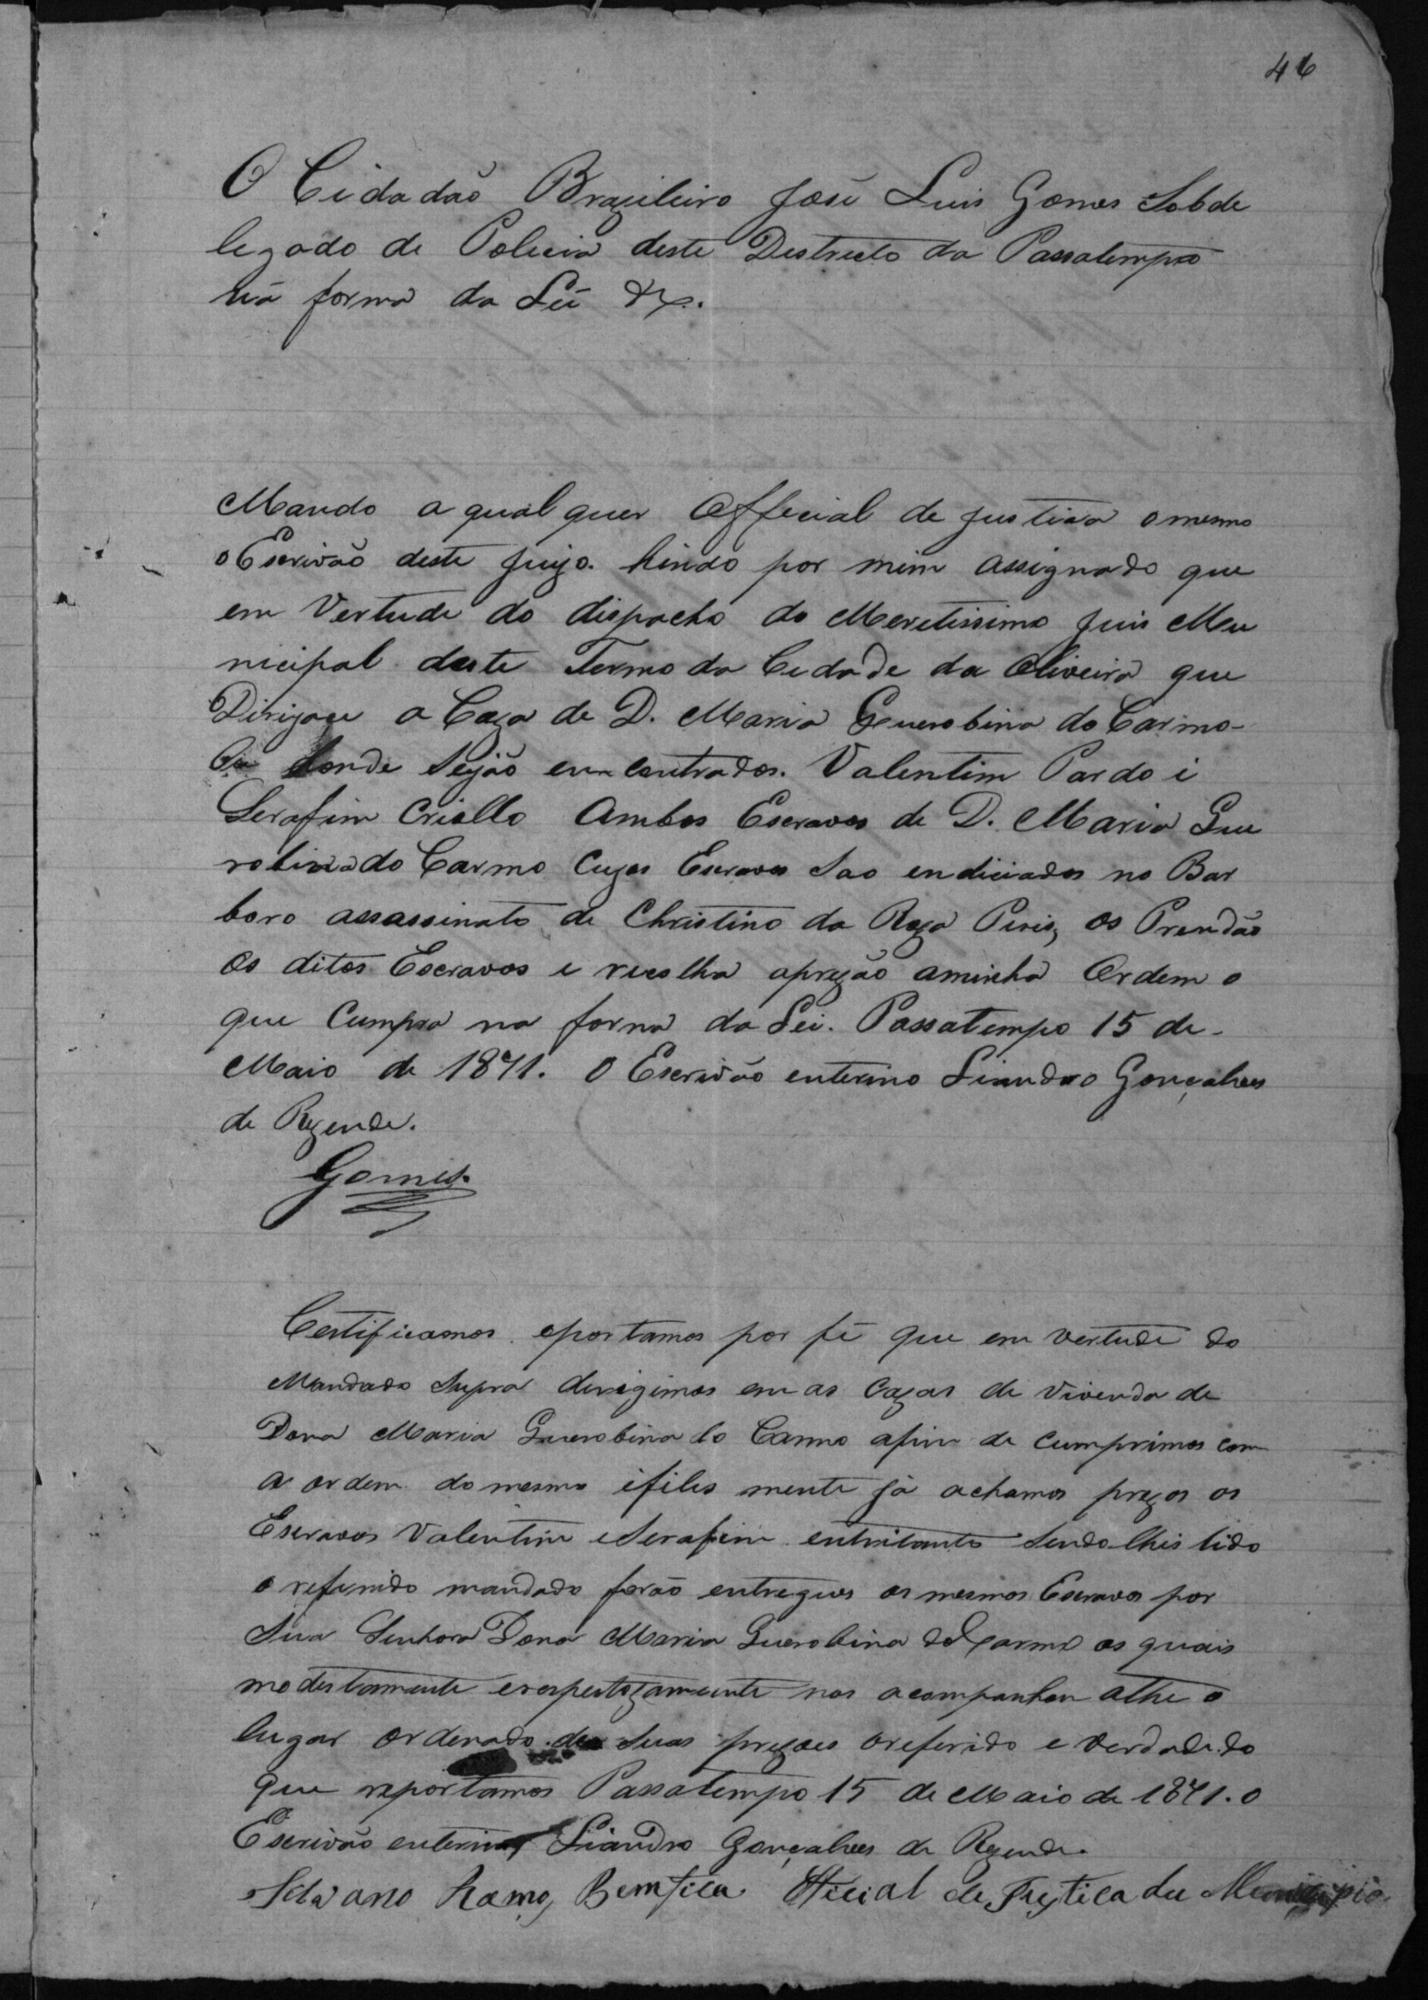 46
O Cidadão Brazileiro José Luis Gomes Sobde
legado de Policia deste Destricto da Passatempo
ná forma da Lei &.
Mando a qual quer Official de justisa o mesmo
o Escrivão deste juizo. hindo por mim assignado que
em Vertude do dispacho do Meretissimo juis Mu
nicipal deste Termo da Cidade da Oliveira que
Dirijace a Caza de D. Maria Guerobina do Carmo
Ou donde Sejão emcontrados. Valentim Pardo i
Serafim Criollo Ambos Escravos de D. Maria Gue
robina do Carmo Cujos Escravos Sao endiciados no Bar
boro assassinato de Christino da Roza Piris, os Prendão
os ditos Escravos e recolha aprezão aminha Ordem o
que Cumpra na forma da Lei. Passatempo 15 de
Maio de 1871. O Escrivão enterino Liandro Gonçalves
de Rezende.
Gomes.
Certificamos eportamos por fé que em vertude do
Mandado Supra derigimos em as Cazas de Vivenda de
Dona Maria Guerobina do Carmo afim de cumprimos com
a ordem do mesmo ifilis mente já achamos prezos os
Escravos Valentim eSerafim entritanto Sendolhes lido
o referido mandado forão entregues os mesmos Escravos por
Sua Senhora Dona Maria Guerobina do Carmo os quais
modestamente erespeitozamente nos acompanhou athe o
lugar ordenado de Suas prezoes oreferido e verdade do
que reportamos Passatempo 15 de Maio de 1871. O
Escrivão enterino Liandro Gonçalves de Rezende.
Ramos Bemfica Oficial de Justica du Municipio